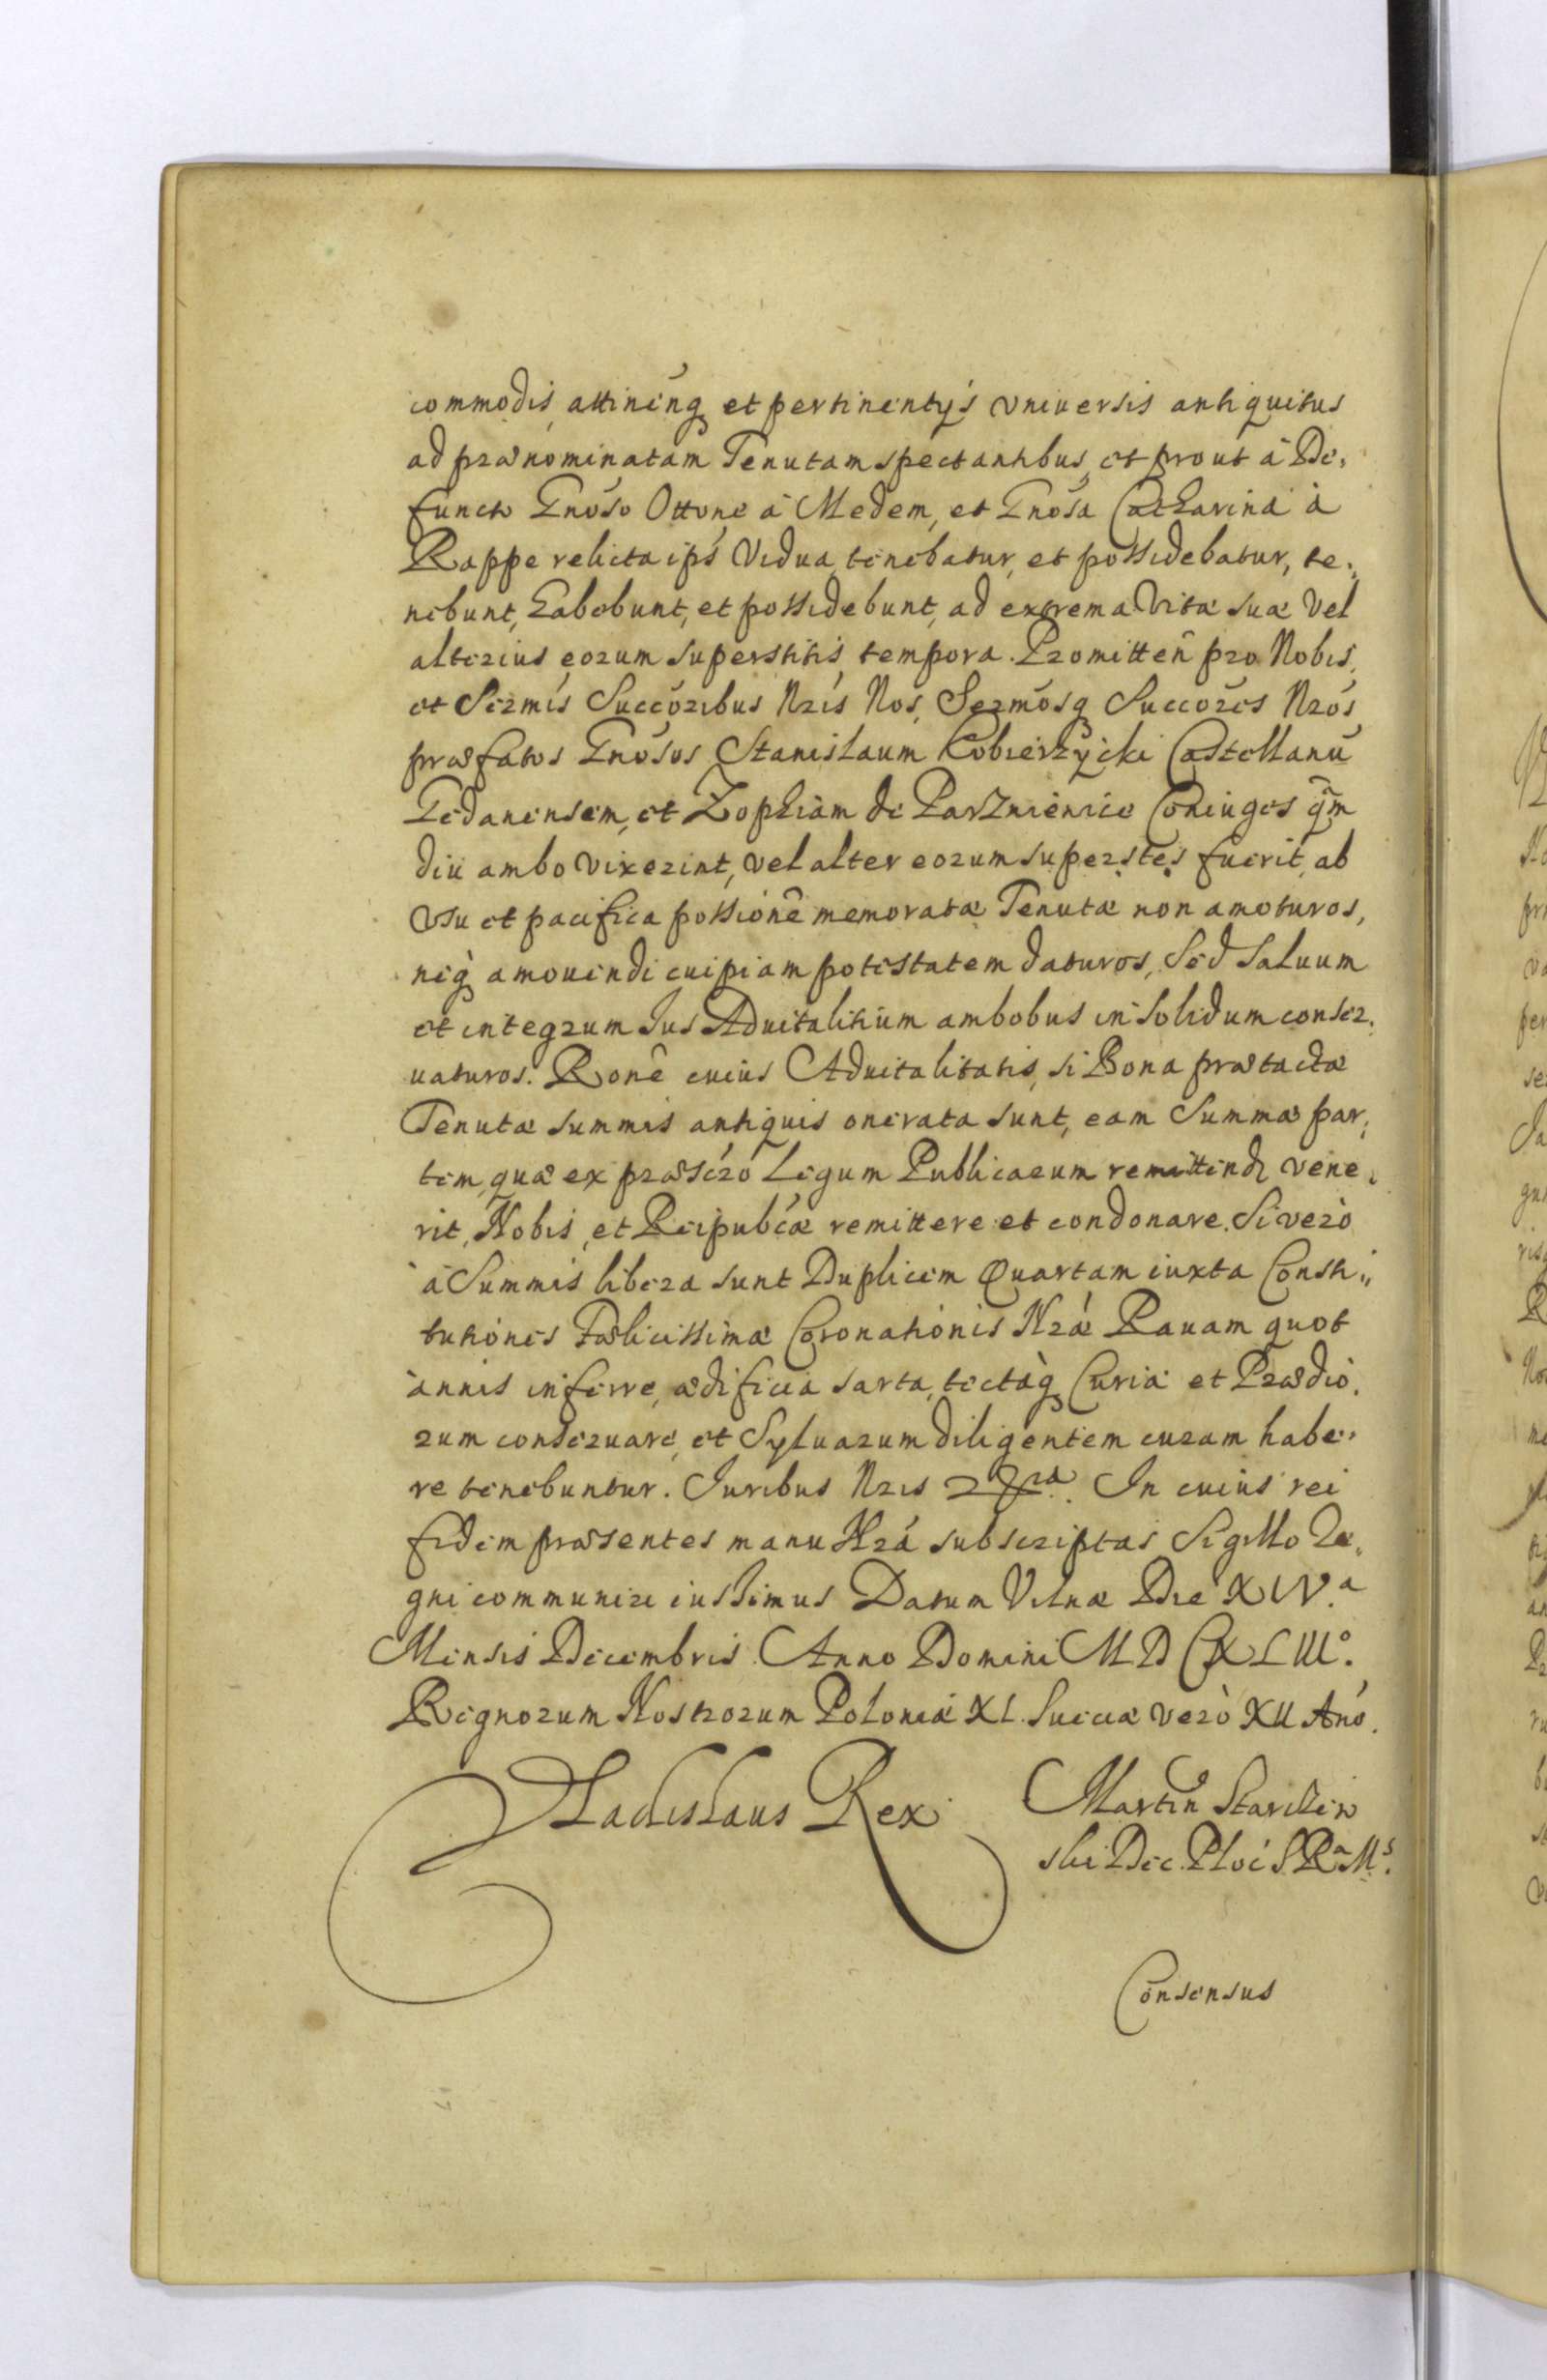 commodis, attineñq et pertinentijs vniuersis antiquitus
ad prænominatam Tenutam spectantibus, et prout à De,
functo Gnoso Ottone à Medem, et Gnosa Catharina à
Rappe relicta ips Vidua tenebatur, et possidebatur, te,
nebunt, habebunt, et possidebunt, ad extrema Vitæ suæ Vel
alterius eorum superstitis tempora. Promitteñ pro Nobis,
et Sermis Succoribus Nris Nos, Sermosq Succores Nros
præfatos Gnosos Stanislaum Kobierzycki Castellanū
Gedanensem, et Zophiam de Parzniewice Coniuges qm̃
diu ambo vixerint, vel alter eorum superstes fuerit, ab
vsu et pacifica possionẽ memoratæ Tenutæ non amoturos,
neq̀ amouendi cuipiam potestatem daturos, Sed saluum
et integrum Ius Aduitalitium ambobus in solidum conser,
uaturos. Ronẽ cuius Aduitalitatis, si Bona prætactæ
Tenutæ summis antiquis onerata sunt, eam Summæ par,
tem, quæ ex præscro Legum Publicarum remittendi vene,
rit, Nobis, et Reipubcæ remittere et condonare. Si verò
à Summis libera sunt Duplicem Quartam iuxta Consti,,
tutiones Fælicissimæ Coronationis Nræ Rauam quot
annis inferre, ædificia sarta, tectaq̀ Curiæ et Prædio,
rum conseruare, et Syluarum diligentem curam habe,
re tenebuntur. Iuribus Nris In cuius rei
fidem præsentes manu Nra subscriptas Sigillo Re,
gni communire iussimus Datum Vilnæ Die XIV.a
Mensis Decembris Anno Domini MDCXLIII.o
Regnorum Nostrorum Poloniæ XI. Sueciæ verò XII Año.
Vladislaus Rex Martin
ski Dec. Ploc S.Ra.Ms.
Consensus